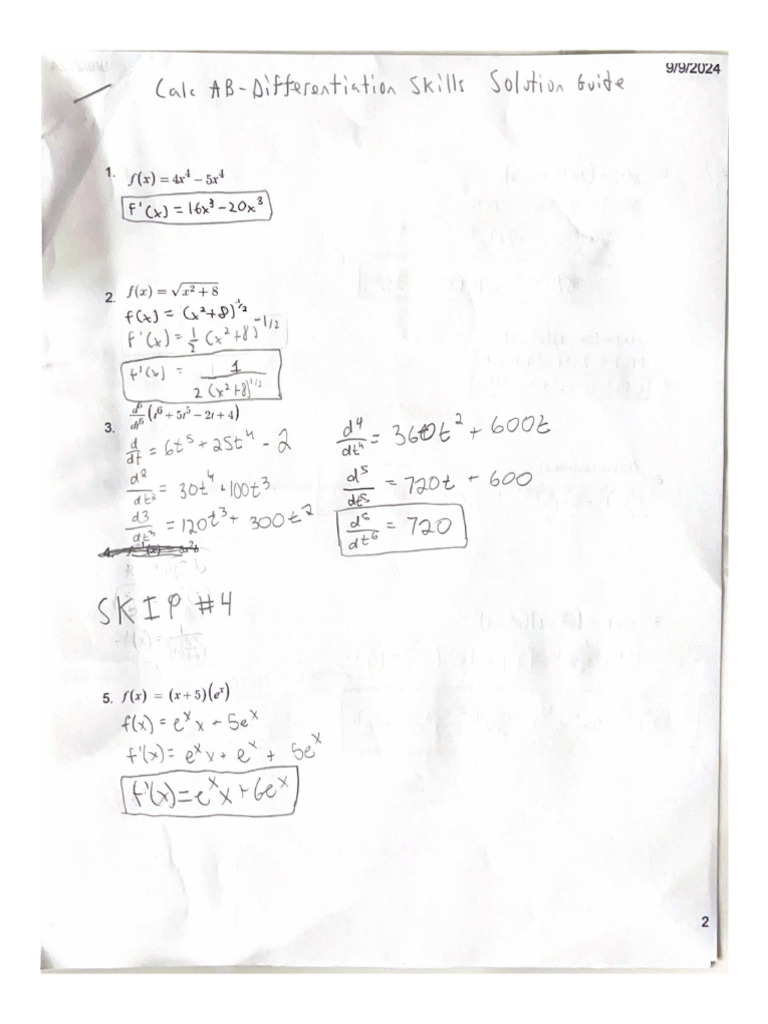 9/9/2024
Calc AB-Differentiation Skills Solution Guide
1. f(x) = 4x⁴ − 5x⁴
f'(x) = 16x³ − 20x³
2. f(x) = √(x² + 8)
f(x) = (x²+8)^1/2
f'(x) = 1/2 (x²+8)^-1/2
f'(x) = 1 / 2(x²+8)^1/2
3. d⁶/dt⁶ (t⁶ + 5t⁵ − 2t + 4)
d/dt = 6t⁵ + 25t⁴ − 2
d²/dt² = 30t⁴ + 100t³
d3/dt³ = 120t³ + 300t²
d⁴/dt⁴ = 360t² + 600t
d⁵/dt⁵ = 720t + 600
d⁶/dt⁶ = 720
4.
SKIP #4
5. f(x) = (x + 5)(eˣ)
f(x) = eˣx + 5eˣ
f'(x) = eˣx + eˣ + 5eˣ
f'(x) = eˣx + 6eˣ
2